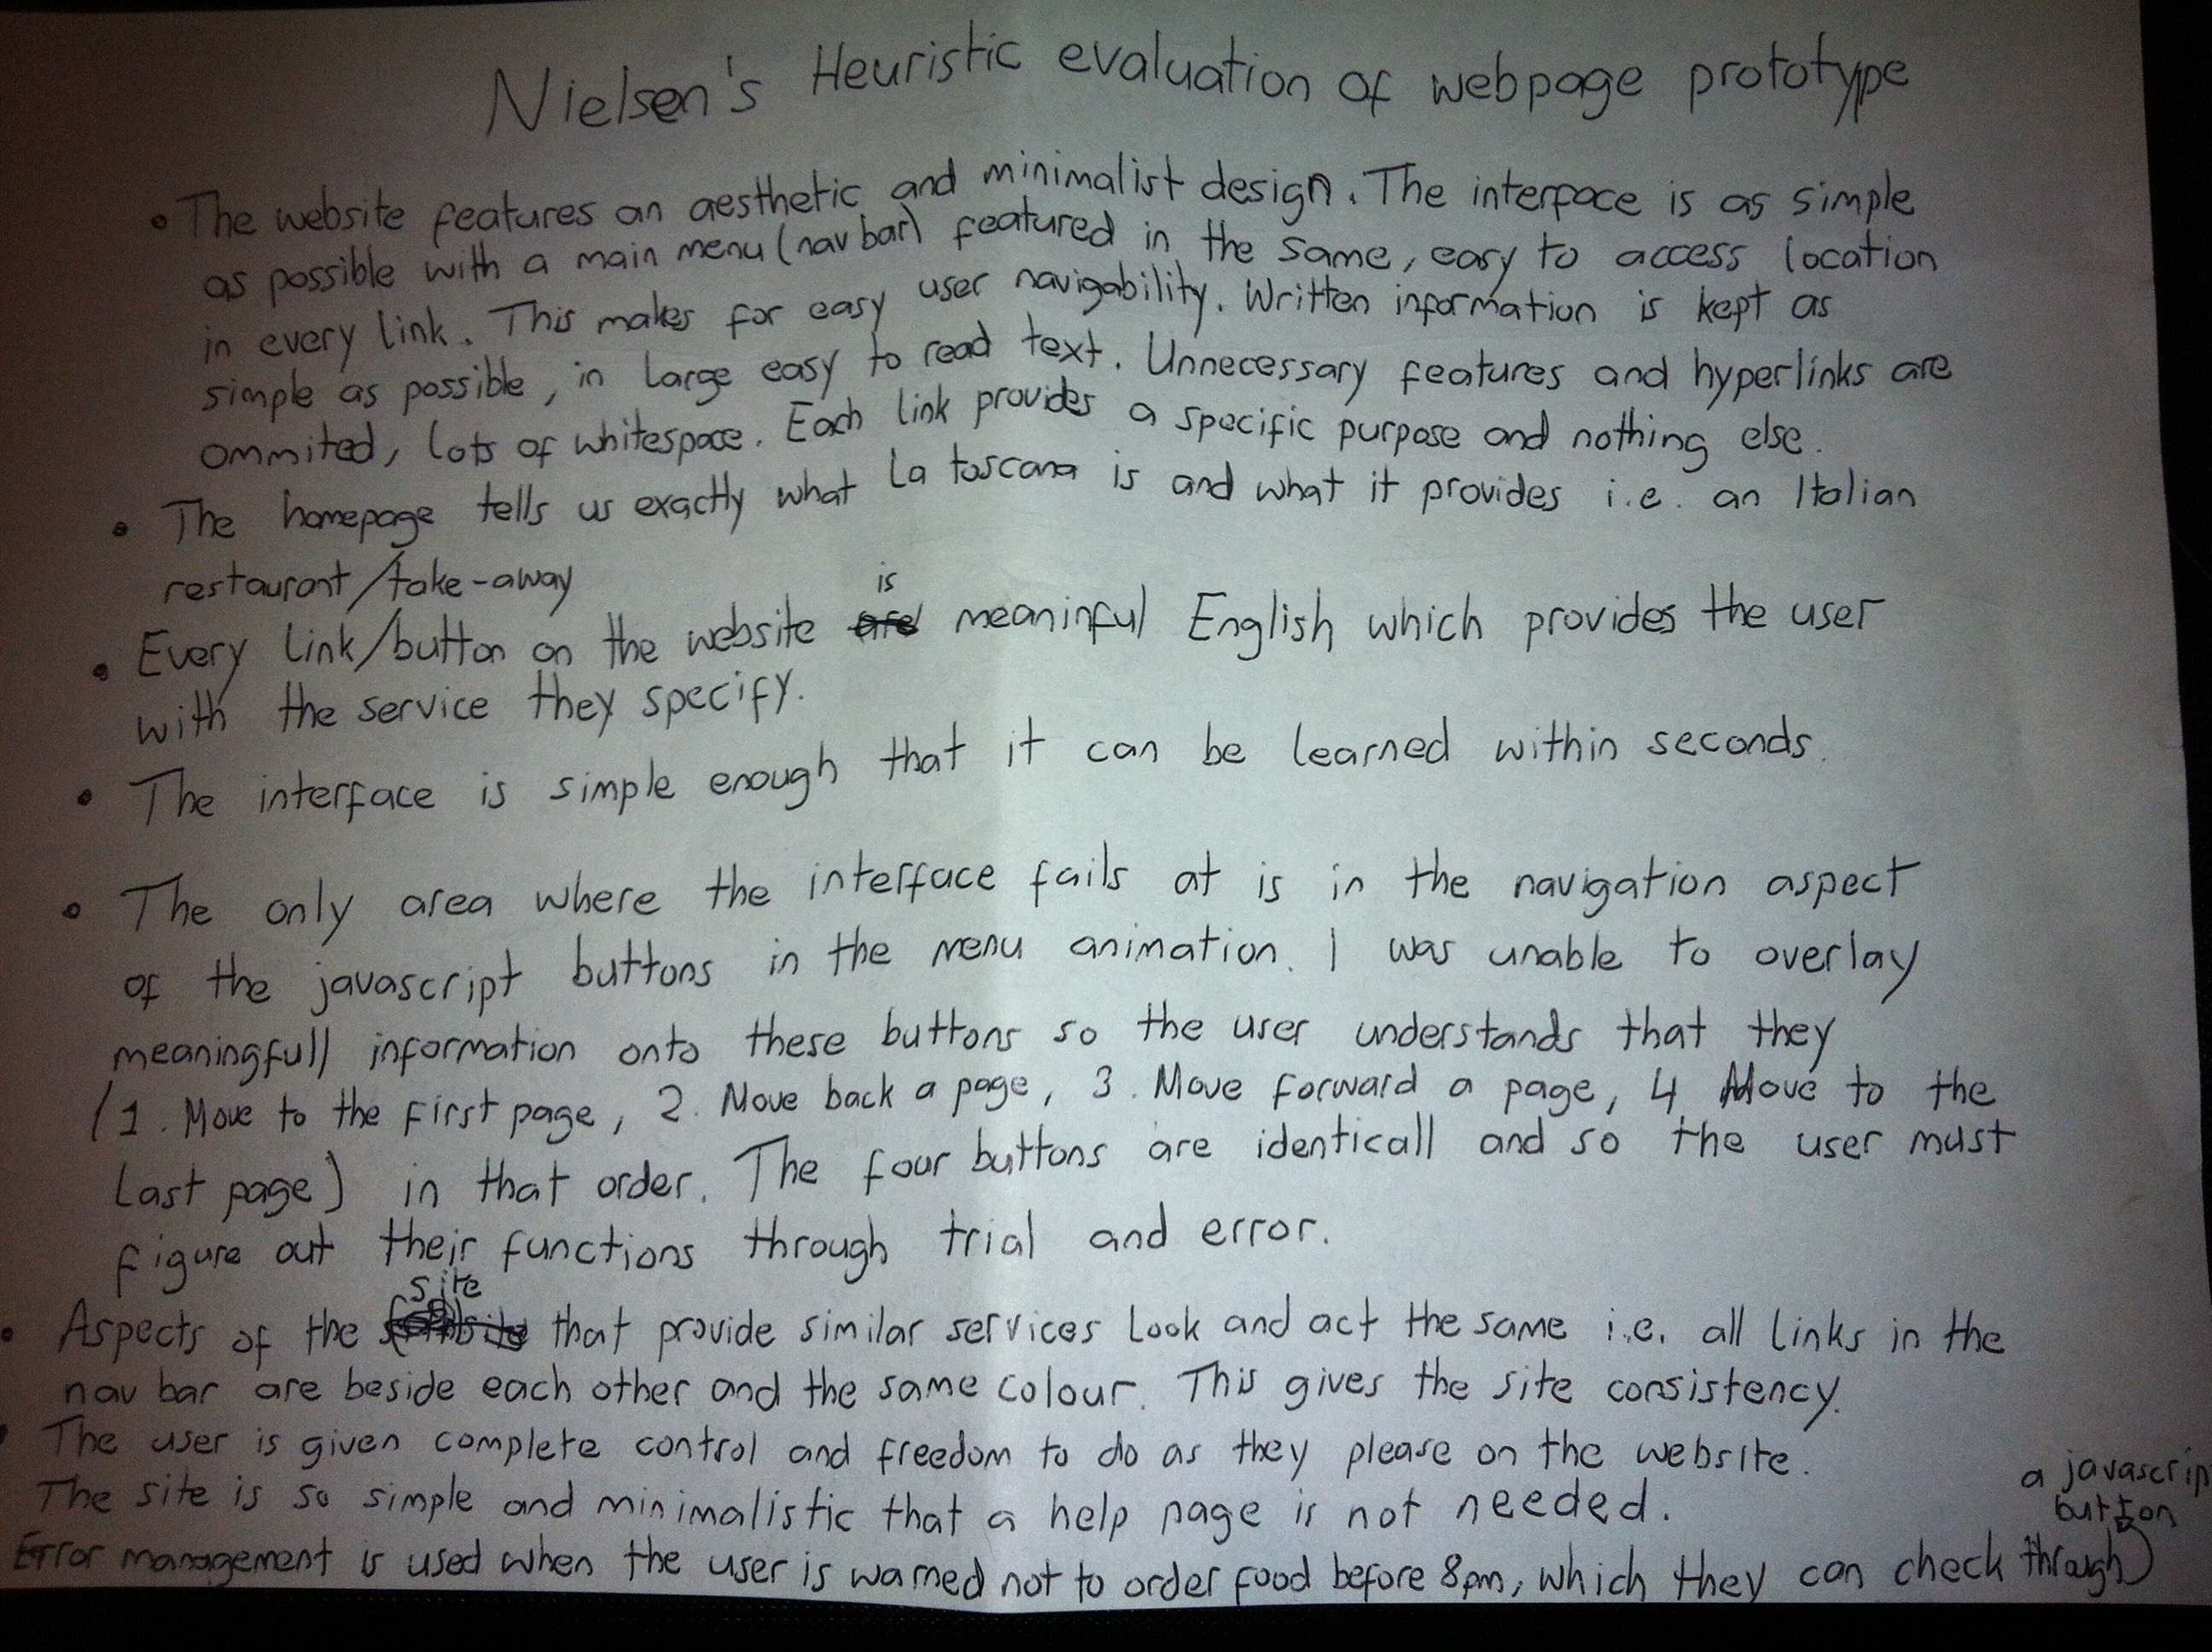 Nielsen's Heuristic evaluation of webpage prototype
• The website features an aesthetic and minimalist design. The interface is as simple
as possible with a main menu (nav bar) featured in the same, easy to access location
in every link. This makes for easy user navigability. Written information is kept as
simple as possible, in large easy to read text. Unnecessary features and hyperlinks are
ommited, lots of whitespace. Each link provides a specific purpose and nothing else.
• The homepage tells us exactly what La toscana is and what it provides i.e. an Italian
restaurant/take-away
• Every link/button on the website is meaninful English which provides the user
with the service they specify.
• The interface is simple enough that it can be learned within seconds.
• The only area where the interface fails at is in the navigation aspect
of the javascript buttons in the menu animation. I was unable to overlay
meaningfull information onto these buttons so the user understands that they
(1. Move to the first page, 2. Move back a page, 3. Move forward a page, 4. Move to the
last page) in that order. The four buttons are identicall and so the user must
figure out their functions through trial and error.
• Aspects of the site that provide similar services look and act the same i.e. all links in the
nav bar are beside each other and the same colour. This gives the site consistency.
• The user is given complete control and freedom to do as they please on the website.
The site is so simple and minimalistic that a help page is not needed.
Error management is used when the user is warned not to order food before 8pm, which they can check through
a javascrip
button